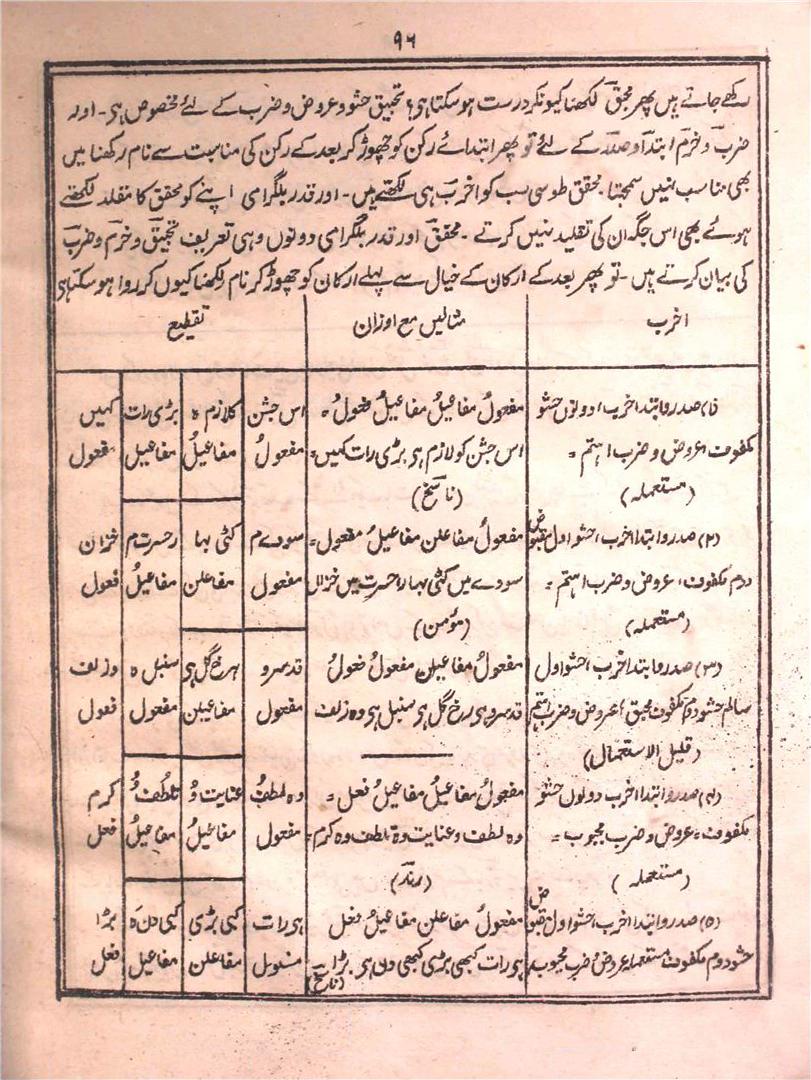 ۹۶
رکھے جاتے ہیں پھر مخبق لکھنا کیونکر درست ہو سکتا ہی؟ تخبیق حشو و عروض و ضرب کے لئے مخصوص ہی۔ اور
ضرب و خرم ابتدا و صدر کے لئے تو پھر ابتدائے رکن کو چھوڑ کر بعد کے رکن کی مناسبت سے نام رکھنا میں
بھی مناسب نہیں سمجھتا۔ محقق طوسی سب کو اخرب ہی لکھتے ہیں۔ اور قدر بلگرامی اپنے کو محقق کا مقلد لکھتے
ہوئے بھی اس جگہ ان کی تقلید نہیں کرتے۔ محقق اور قدر بلگرامی دونوں وہی تعریف تخبیق و خرم و ضرب
کی بیان کرتے ہیں۔ تو پھر بعد کے ارکان کے خیال سے پہلے ارکان کو چھوڑ کر نام رکھنا کیوں کر روا ہو سکتا ہی
اخرب مثالیں مع اوزان تقطیع
(۱) صدر و ابتدا اخرب، دونوں حشو مفعولُ مفاعیلُ مفاعیلُ فعولُ اس جشن کلازم ہ بڑی رات کہیں
مکفوف، عروض و ضرب اہتم = اس جشن کو لازم ہی بڑی رات کہیں = مفعولُ مفاعیلُ مفاعیلُ مفعول
(مستعملہ) (ناسخ)
(۲) صدر و ابتدا اخرب، حشو اول مقبوض مفعولُ مفاعلن مفاعیلُ مفعول = سودے م کٹی بہا رحسرت م خزاں
دوم مکفوف، عروض و ضرب اہتم = سودے میں کٹی بہار حسرت میں خزاں مفعول مفاعلن مفاعیلُ فعول
(مستعملہ) (مومن)
(۳) صدر و ابتدا اخرب، حشو اول مفعولُ مفاعیلن مفعولُ فعولُ قد سرو ہ رخ گل ہی سنبل ہ و زلف
سالم حشو دوم مکفوف مخبق، عروض و ضرب اہتم قد سرو ہی رخ گل ہی سنبل ہی وہ زلف مفعول مفاعیلن مفعول فعول
(قلیل الاستعمال)
(۴) صدر و ابتدا اخرب دونوں حشو مفعولُ مفاعیلُ مفاعیلُ فعل = وہ لطفُ عنایت وُ تلطف وُ کرم
مکفوف، عروض و ضرب مجبوب = وہ لطف و عنایت وہ تلطف وہ کرم = مفعول مفاعیلُ مفاعیلُ فعل
(مستعملہ) (رند)
(۵) صدر و ابتدا اخرب، حشو اول مقبوض مفعولُ مفاعلن مفاعیلُ فعل ہی رات کبی بڑی کبی دن ہ بڑا
حشو دوم مکفوف مستعملہ عروض و ضرب مجبوب ہی رات کبھی بڑی کبھی دن ہی بڑا (ناسخ) مفعول مفاعلن مفاعیل فعل